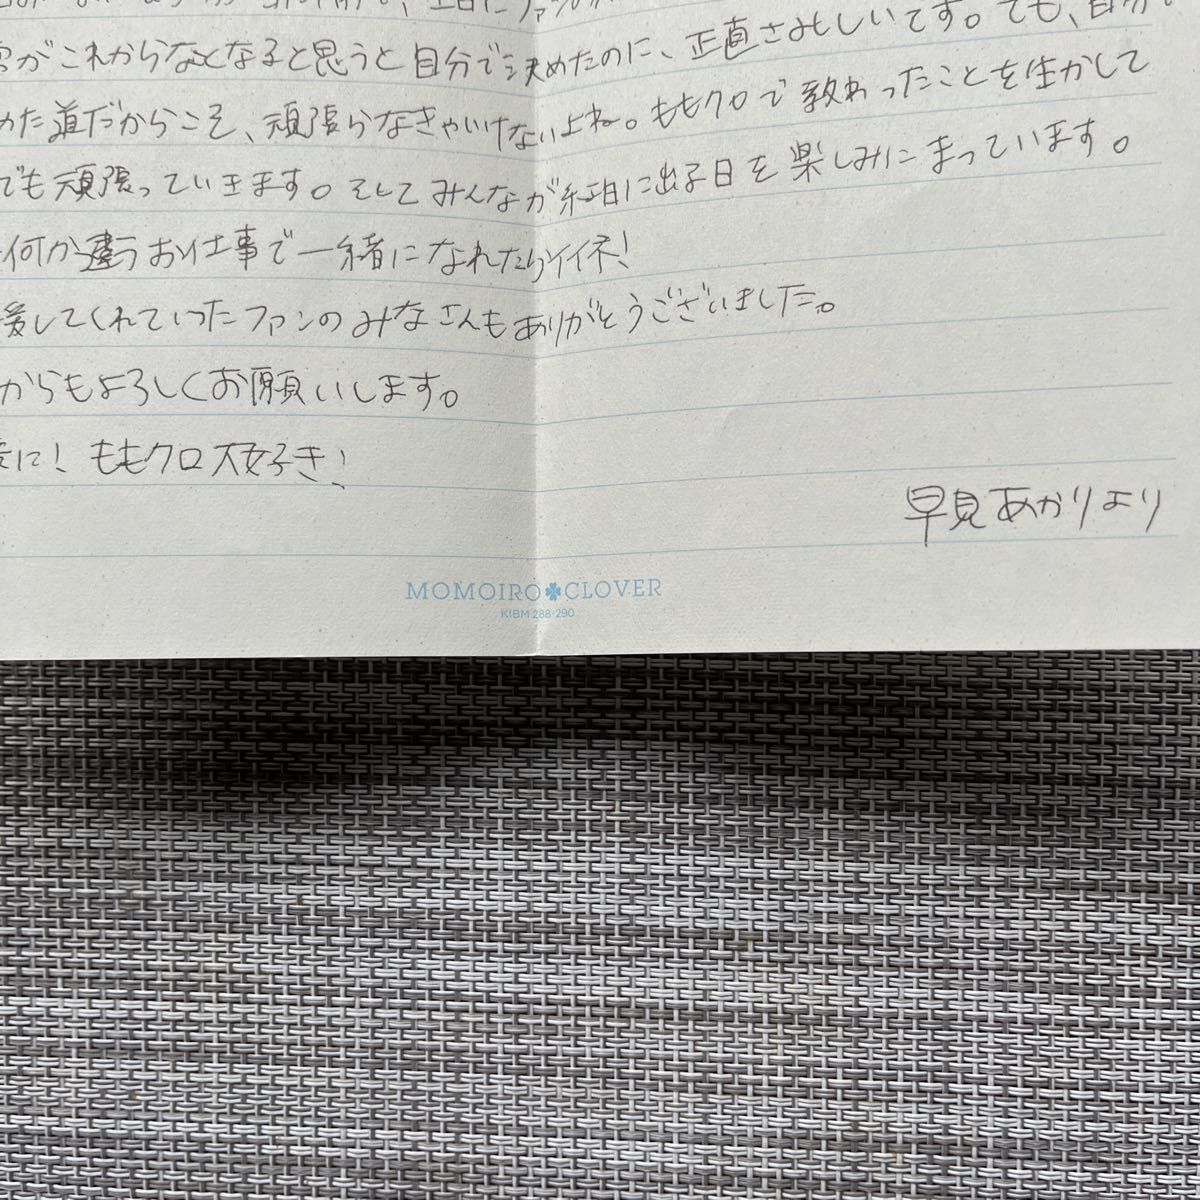 がこれからなくなると思うと自分で決めたのに、正直さみしいです。でも、自分
めた道だからこそ、頑張らなきゃいけないよね。ももクロで教わったことを生かして
でも頑張っていきます。そしてみんなが紅白に出る日を楽しみにまっています。
何か違うお仕事で一緒になれたらイイネ!
援してくれていったファンのみなさんもありがとうございました。
からもよろしくお願いします。
に!ももクロ大好き!
早見あかりより
MOMOIRO CLOVER
KIBM 288-290